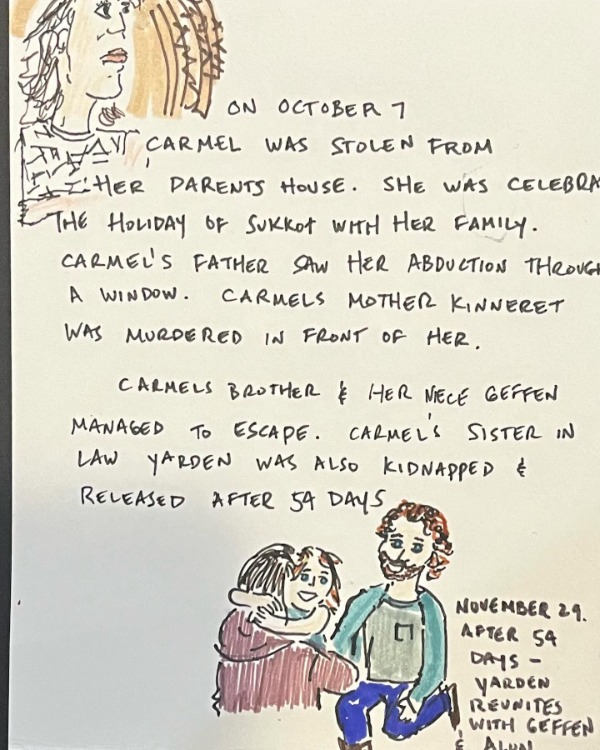 ON OCTOBER 7
CARMEL WAS STOLEN FROM
HER PARENTS HOUSE. SHE WAS CELEBRA
THE HOLIDAY OF SUKKOT WITH HER FAMILY.
CARMEL'S FATHER SAW HER ABDUCTION THROUGH
A WINDOW. CARMELS MOTHER KINNERET
WAS MURDERED IN FRONT OF HER.
CARMELS BROTHER & HER NECE GEFFEN
MANAGED TO ESCAPE. CARMEL'S SISTER IN
LAW YARDEN WAS ALSO KIDNAPPED &
RELEASED AFTER 54 DAYS
NOVEMBER 29.
AFTER 54
DAYS -
YARDEN
REUNITES
WITH GEFFEN
&